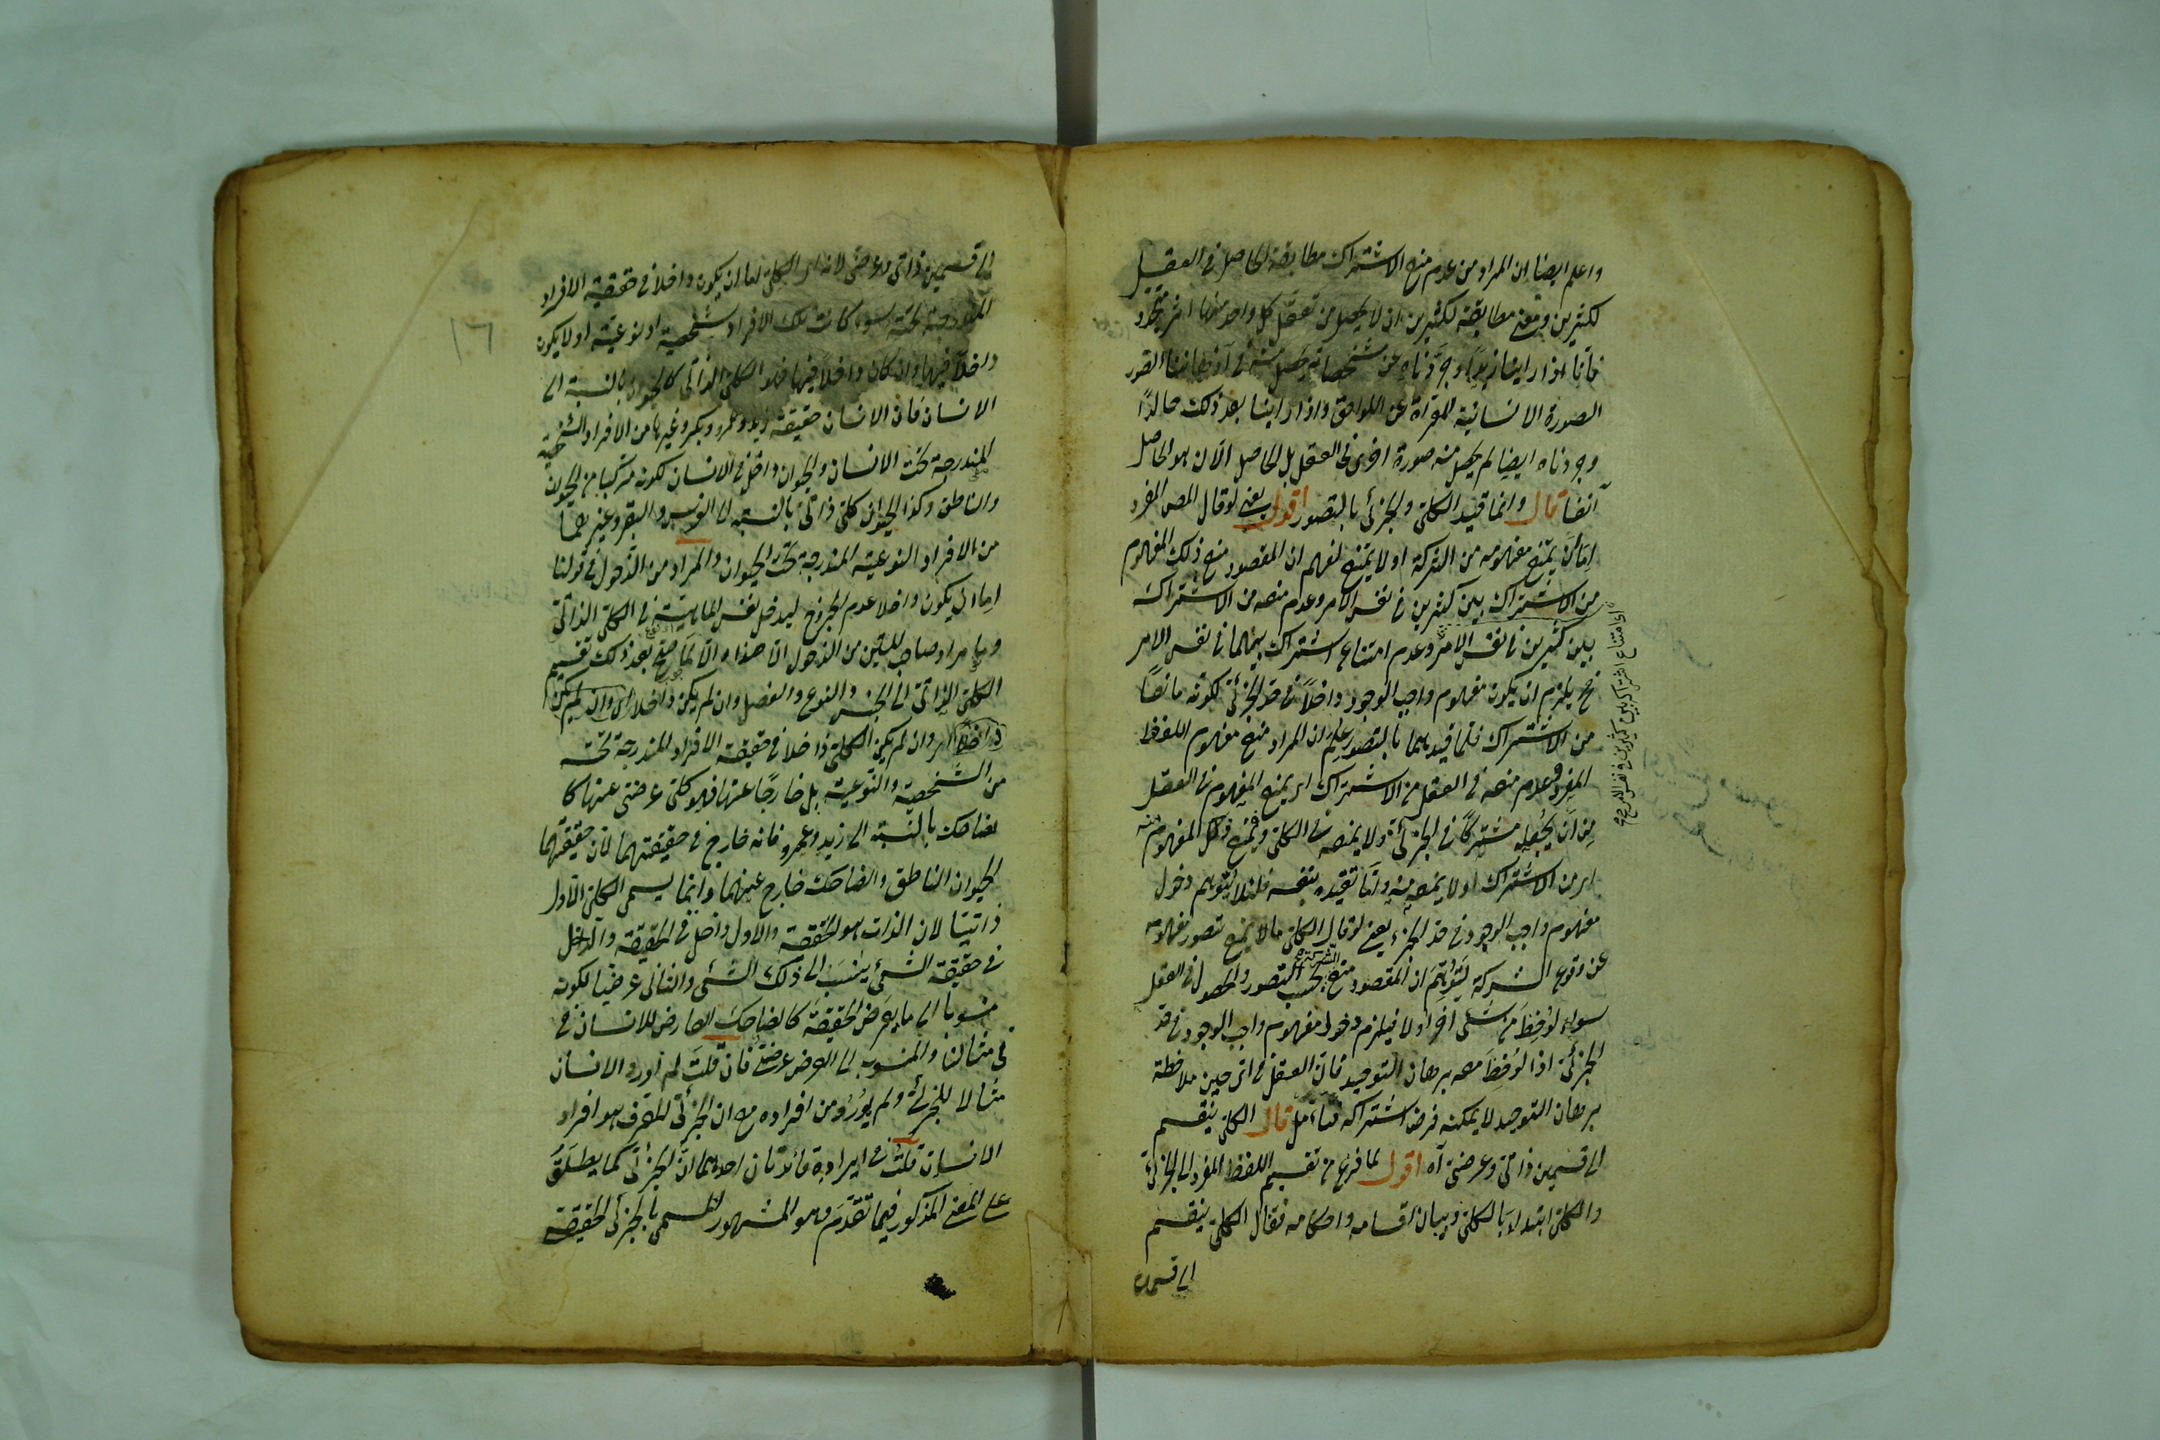 واعلم ايضا ان المراد من عدم منع الاشتراك مطابقة الحاصل فى العقل
لكثيرين ومعنى مطابقة لكثيرين ان لا يحصل من تعقل كل واحد منها اثر متجدد
فانا اذا راينا زيدا وجردناه عن مشخصاته حصل منه فى آذهاننا الصور
الصورة الانسانية المعراة عن اللواحق واذا راينا بعد ذلك خالدًا
وجردناه ايضا لم يحصل منه صورة اخرى فى العقل بل الحاصل الآن هو الحاصل
آنفا قال وانما قيد الكلى والجزئى بالتصور اقول يعنى لو قال المص المفرد
اما ان يمنع مفهومه من الشركة او لا يمنع لفهم ان المقصود منع ذلك المفهوم
من الاشتراك بين كثيرين فى نفس الامر وعدم منعه من الاشتراك
بين كثيرين فى نفس الامر وعدم امتناع اشتراك بينهما فى نفس الامر
فح يلزم ان يكون مفهوم واجب الوجود داخلا فى حد الجزئى لكونه مانعًا
من الاشتراك فلما قيدهما بالتصور علم ان المراد منع مفهوم اللفظ
المفرد وعدم منعه فى العقل من الاشتراك اى يمنع المفهوم فى العقل
من ان يجعله مشتركًا فى الجزئى ولا يمنعه فى الكلى ويمنع ذلك المفهوم منه
اى من الاشتراك او لا يمنعه منه وانما تقيده بنفسه فلئلا يتوهم دخول
مفهوم واجب الوجود فى حد الجزء يعنى لو قال الكلى ما لا يمنع تصور مفهومه
عن وقوع الشركة ليتوهم ان المقصود منع الشركة بحسب التصور والحصول فى العقل
سواء لوحظ مع شئ اخر او لا فيلزم دخول مفهوم واجب الوجود فى حد
الجزئى اذا لوحظ معه برهان التوحيد فان العقل فى اى حين ملاحظة
برهان التوحيد لا يمكنه فرض اشتراكه فتامل قال الكلى ينقسم
الى قسمين ذاتى وعرضى آه اقول لما فرغ من تقسيم اللفظ المفرد الى الجزئى
والكلى ابتداء بالكلى وبيان اقسامه واحكامه فقال الكلى ينقسم
الى قسمين
او امتناع اشتراكه بين كثيرين فى نفس الامر صح
١٦
الى قسمين ذاتى وعرضى لانه اى الكلى اما ان يكون داخلا فى حقيقية الافراد
المندرجة تحته سواء كانت تلك الافراد شخصية او نوعية او لا يكون
داخلا فيها وان كان داخلا فيها فهو الكلى الذاتى كالحيوان بالنسبة الى
الانسان فان الانسان حقيقة زيد وعمرو وبكر وغيرها من الافراد الشخصية
المندرجة تحت الانسان والحيوان داخل فى الانسان لكونه مركبا من الحيوان
والناطق وكذا الحيوان كلى ذاتى بالنسبة الى الفرس والبقر وغيرهما
من الافراد النوعية المندرجة تحت الحيوان والمراد من الدخول فى قولنا
اما ان يكون داخلا عدم الخروج ليدخل نفس الماهية فى الكلى الذاتى
وما مراد صاحب المتن من الدخول الا هذا والا لما صح بعد ذلك تقسيم
الكلى الذاتى الى الجنس والنوع والفصل وان لم يكن داخلا اى وان لم يكن
داخلا اى وان لم يكن الكلى داخلا فى حقيقة الافراد المندرجة تحته
من الشخصية والنوعية بل خارجًا عنها فهو كلى عرضى عنها كا
لضاحك بالنسبة الى زيد وعمرو فانه خارج فى حقيقتهما لان حقيقتهما
الحيوان الناطق والضاحك خارج عنهما وانما يسمى الكلى الاول
ذاتيا لان الذات هو الحقيقة والاول داخل فى الحقيقة والداخل
فى حقيقة الشئ ينسب الى ذلك الشئ والثانى عرضيا لكونه
منسوبا الى ما يعرض الحقيقة كالضاحك العارض للانسان فى
فى مثالنا والمنسوب الى العرض عرضى فان قلت لم اورد الانسان
مثالا للجزئى ولم يورد من افراده مع ان الجزئى المعرف هو افراد
الانسان قلت فى ايراده فائدتان احدهما ان الجزئى كما يطلق
على المعنى المذكور فيما تقدم وهو المشهور المسمى بالجزئى الحقيقة